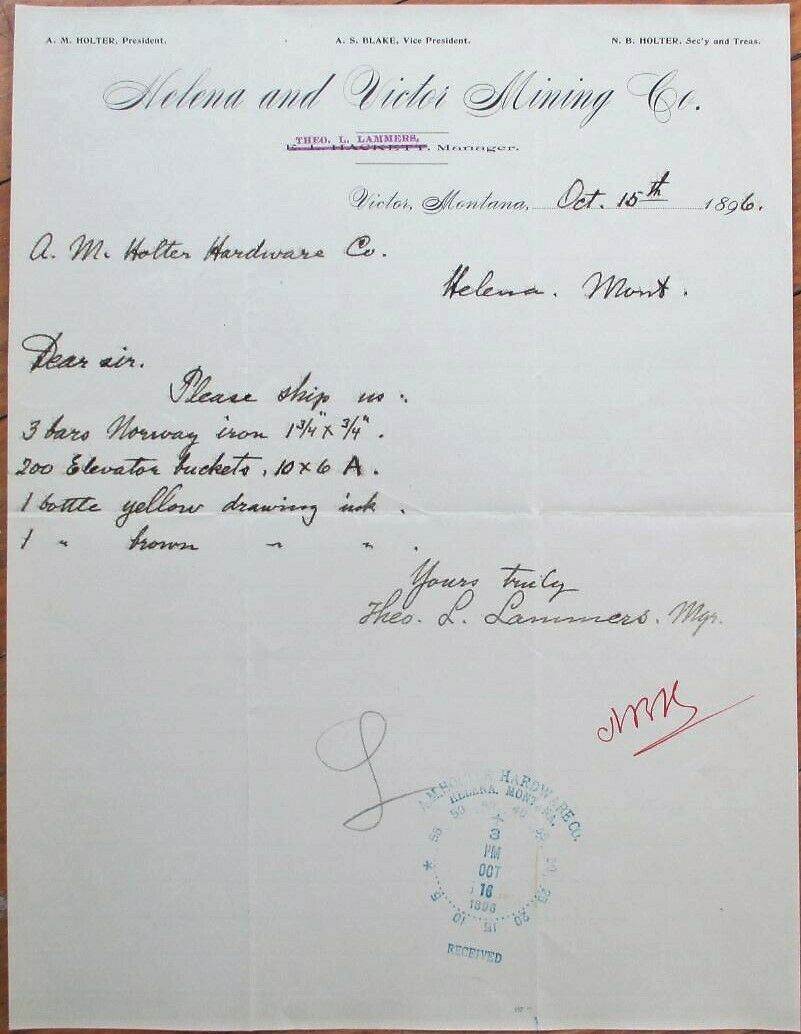 A. M. HOLTER, President. A. S. BLAKE, Vice President. N. B. HOLTER, Sec'y and Treas.
Helena and Victor Mining Co.
THEO. L. LAMMERS,
E. L. HACKETT, Manager.
Victor, Montana, Oct. 15th 1896.
A. M. Holter Hardware Co.
Helena. Mont.
Dear sir.
Please ship us:
3 bars Norway iron 1 3/4" x 3/4".
200 Elevator buckets, 10 x 6 A.
1 bottle yellow drawing ink.
1 " brown " " .
Yours truly
Theo. L. Lammers. Mgr.
NBH
L
A.M. HOLTER HARDWARE CO.
HELENA, MONTANA.
3
PM
OCT
16
1896
RECEIVED